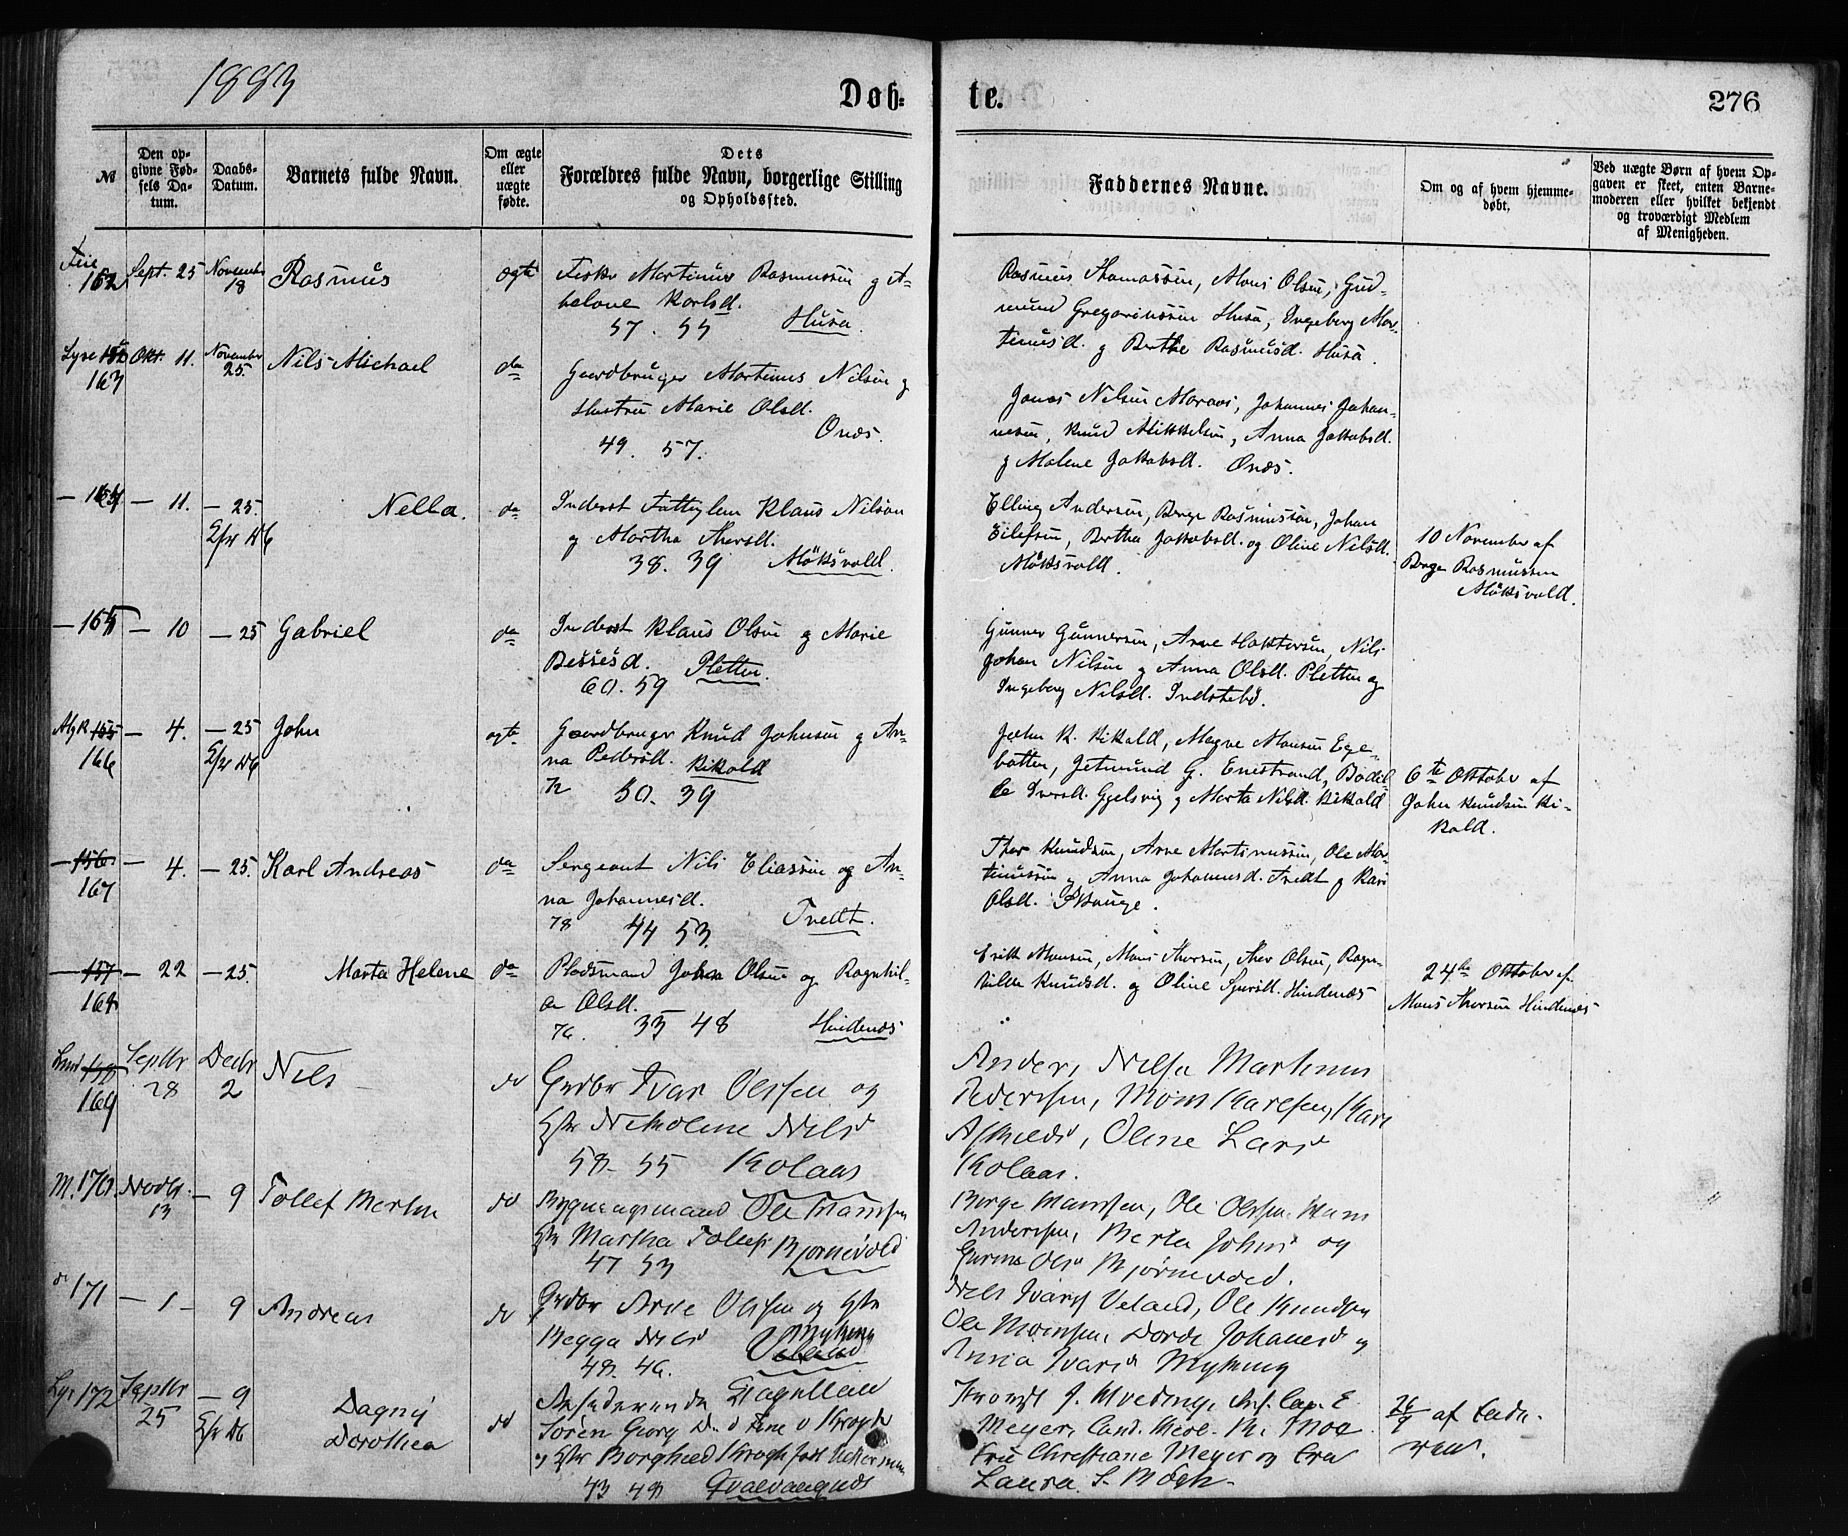 1883
Døb-
te.
276
№
Den op-
givne Fød-
sels Da-
tum.
Daabs-
Datum.
Barnets fulde Navn.
Om ægte
eller
uægte
fødte.
Dets
Forældres fulde Navn, borgerlige Stilling
og Opholdssted.
Faddernes Navne.
Om og af hvem hjemme-
døbt.
Ved uægte Børn af hvem Op-
gaven er skeet, enten Barne-
moderen eller hvilket bekjendt
og troværdigt Medlem
af Menigheden.
162
Sept. 25
November
18
Rasmus
ægte
Fisker Martinus Rasmussen g A-
belone Karlsd.
57. 55 Husa.
Rasmus Thomassen, Mons Olsen, Gud-
mund Gregoriussen Husa, Ingeborg Mar-
tinusd. g Berthe Rasmusd. Husa.
Lyse
163
Okt. 11.
November
25.
Nils Michael
do
Gaardbruger Martinus Nilsen g
Hustru Marie Olsd.
Onæs.
49. 57.
Jonas Nilsen, Johannes Johan-
nesen, Knud Mikkelsen, Anna Jakobsd.
g Malene Jakobsd. Onæs.
164
— 11.
— 25.
Nella.
do
Inderst Klaus Nilsen
g Martha Thorsd.
38. 39 Møksvold.
Elling Andersen, Børge Rasmussen, Johan
Eilefsen, Bertha Jakobsd. og Oline Nilsd.
Møksvold.
10 November af
Børge Rasmussen
Møksvold.
— 165
— 10
— 25
Gabriel
do
Inderst Klaus Olsen g Marie
Bessesd. Pletten.
60. 59
Gunner Gunnersen, Arne Haktorsen, Nils
Johan Nilsen g Anna Olsd. Pletten og
Ingeborg Nilsd. Indstebø.
155
166
— 4.
— 25
John
ægte
Gaardbruger Knud Johnsen g An-
na Pedersd. Kikold
72 50. 39
John K. Kikold, Magne Monsen Ege-
botten, Jetmund G. Enestrand, Bodel-
le Iversd. Gjelsvig g Marta Nilsd. Kikold
6te Oktober af
John Knudsen Ki-
kold.
— 156
167
— 4.
— 25.
Karl Andreas
do
Sergeant Nils Eliassen og An-
na Johannesd.
78 44 53. Tvedt.
Thor Knudsen, Arne Martinussen, Ole Mar-
tinussen g Anna Johannesd. Tvedt g Kari
Olsd. Skauge.
— 157
168
— 22
— 25.
Marta Helene
do
Pladsmand Johan Olsen og Ragnhil-
da Olsd.
76. 35 48 Hindenæs
Erik Monsen, Mons Thorsen, Thor Olsen, Ragn-
hilda Knudsd. og Oline Sjursd. Hindenæs
24de Oktober af
Mons Thorsen Hindenæs
158
169
Septbr
28
Decbr
2
Nils
do
Grdbr Ivar Olssen og
Hstr Nikoline Nilsd
58 - 55 Kolaas
Anders Nilsen Martinus
Pederssen, Mons Karlsen, Kari
Aslaksd, Oline Larsd
Kolaas.
M. 170.
Novbr.
13
— 9
Tollef Martin
do
Bygningsmand Ole Hanssen
Hstr Martha Tollefsd Bjørnevold
47 53
Børge Hanssen, Ole Olssen, Hans
Anderssen, Berta Johnsd og
Gurine Olsd Bjørnevold.
do 171
— 1 -
9
Andreas
do
Grdbr Arve Olssen og Hstr
Begga Nilsd Myking
Veland
48. 46.
Nils Ivarss Veland, Ole Knudsen
Ole Monssen, Dorde Johannesd og
Anna Ivarsd Myking
Lys 172
Septbr
25
— 9
Dagny
Dorothea
do
Søren Georg
g Hstr Borghild Krogh født
43 48
J. Hvedinge, Inf. Cap. E.
Meyer, Cand. theol. K. Thoe
Fru Christiane Meyer og Fru
Laura S. Bøgh.
26/9 af Fade-
ren.